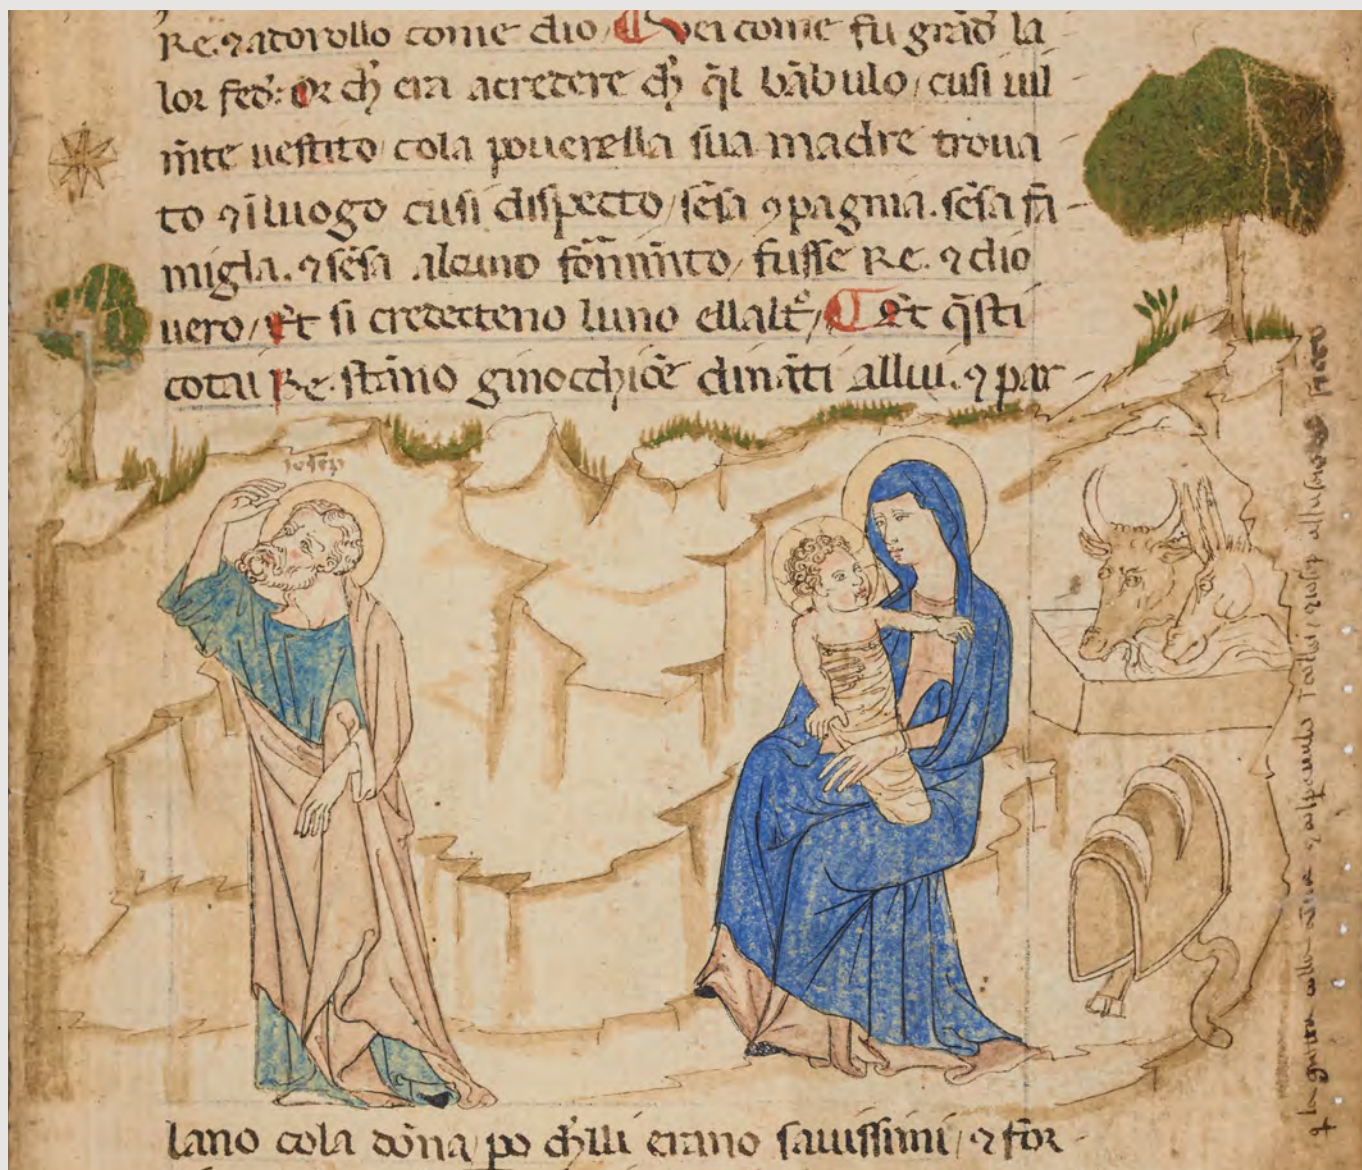 Re. ⁊ adorollo come dio, Vei come fu grãd la
lor fed: Or ch̓ era acredere ch̓ q̃l bãbulo / cusi uil
m̃te uestito / cola pouerella sua madre troua
to ⁊ ĩ luogo cusi dispecto / sẽsa ꝯpagnia. sẽsa fã
migla. ⁊ sẽsa alcuno fornim̃to / fusse Re. ⁊ dio
vero / Et si credecteno luno ellalt̓o / Et q̃sti
cotai Re. stãno ginocchiõe dinãti allui. ⁊ par
ioseph
lano cola dõna / po ch̓lli erano sauissimi / ⁊ for